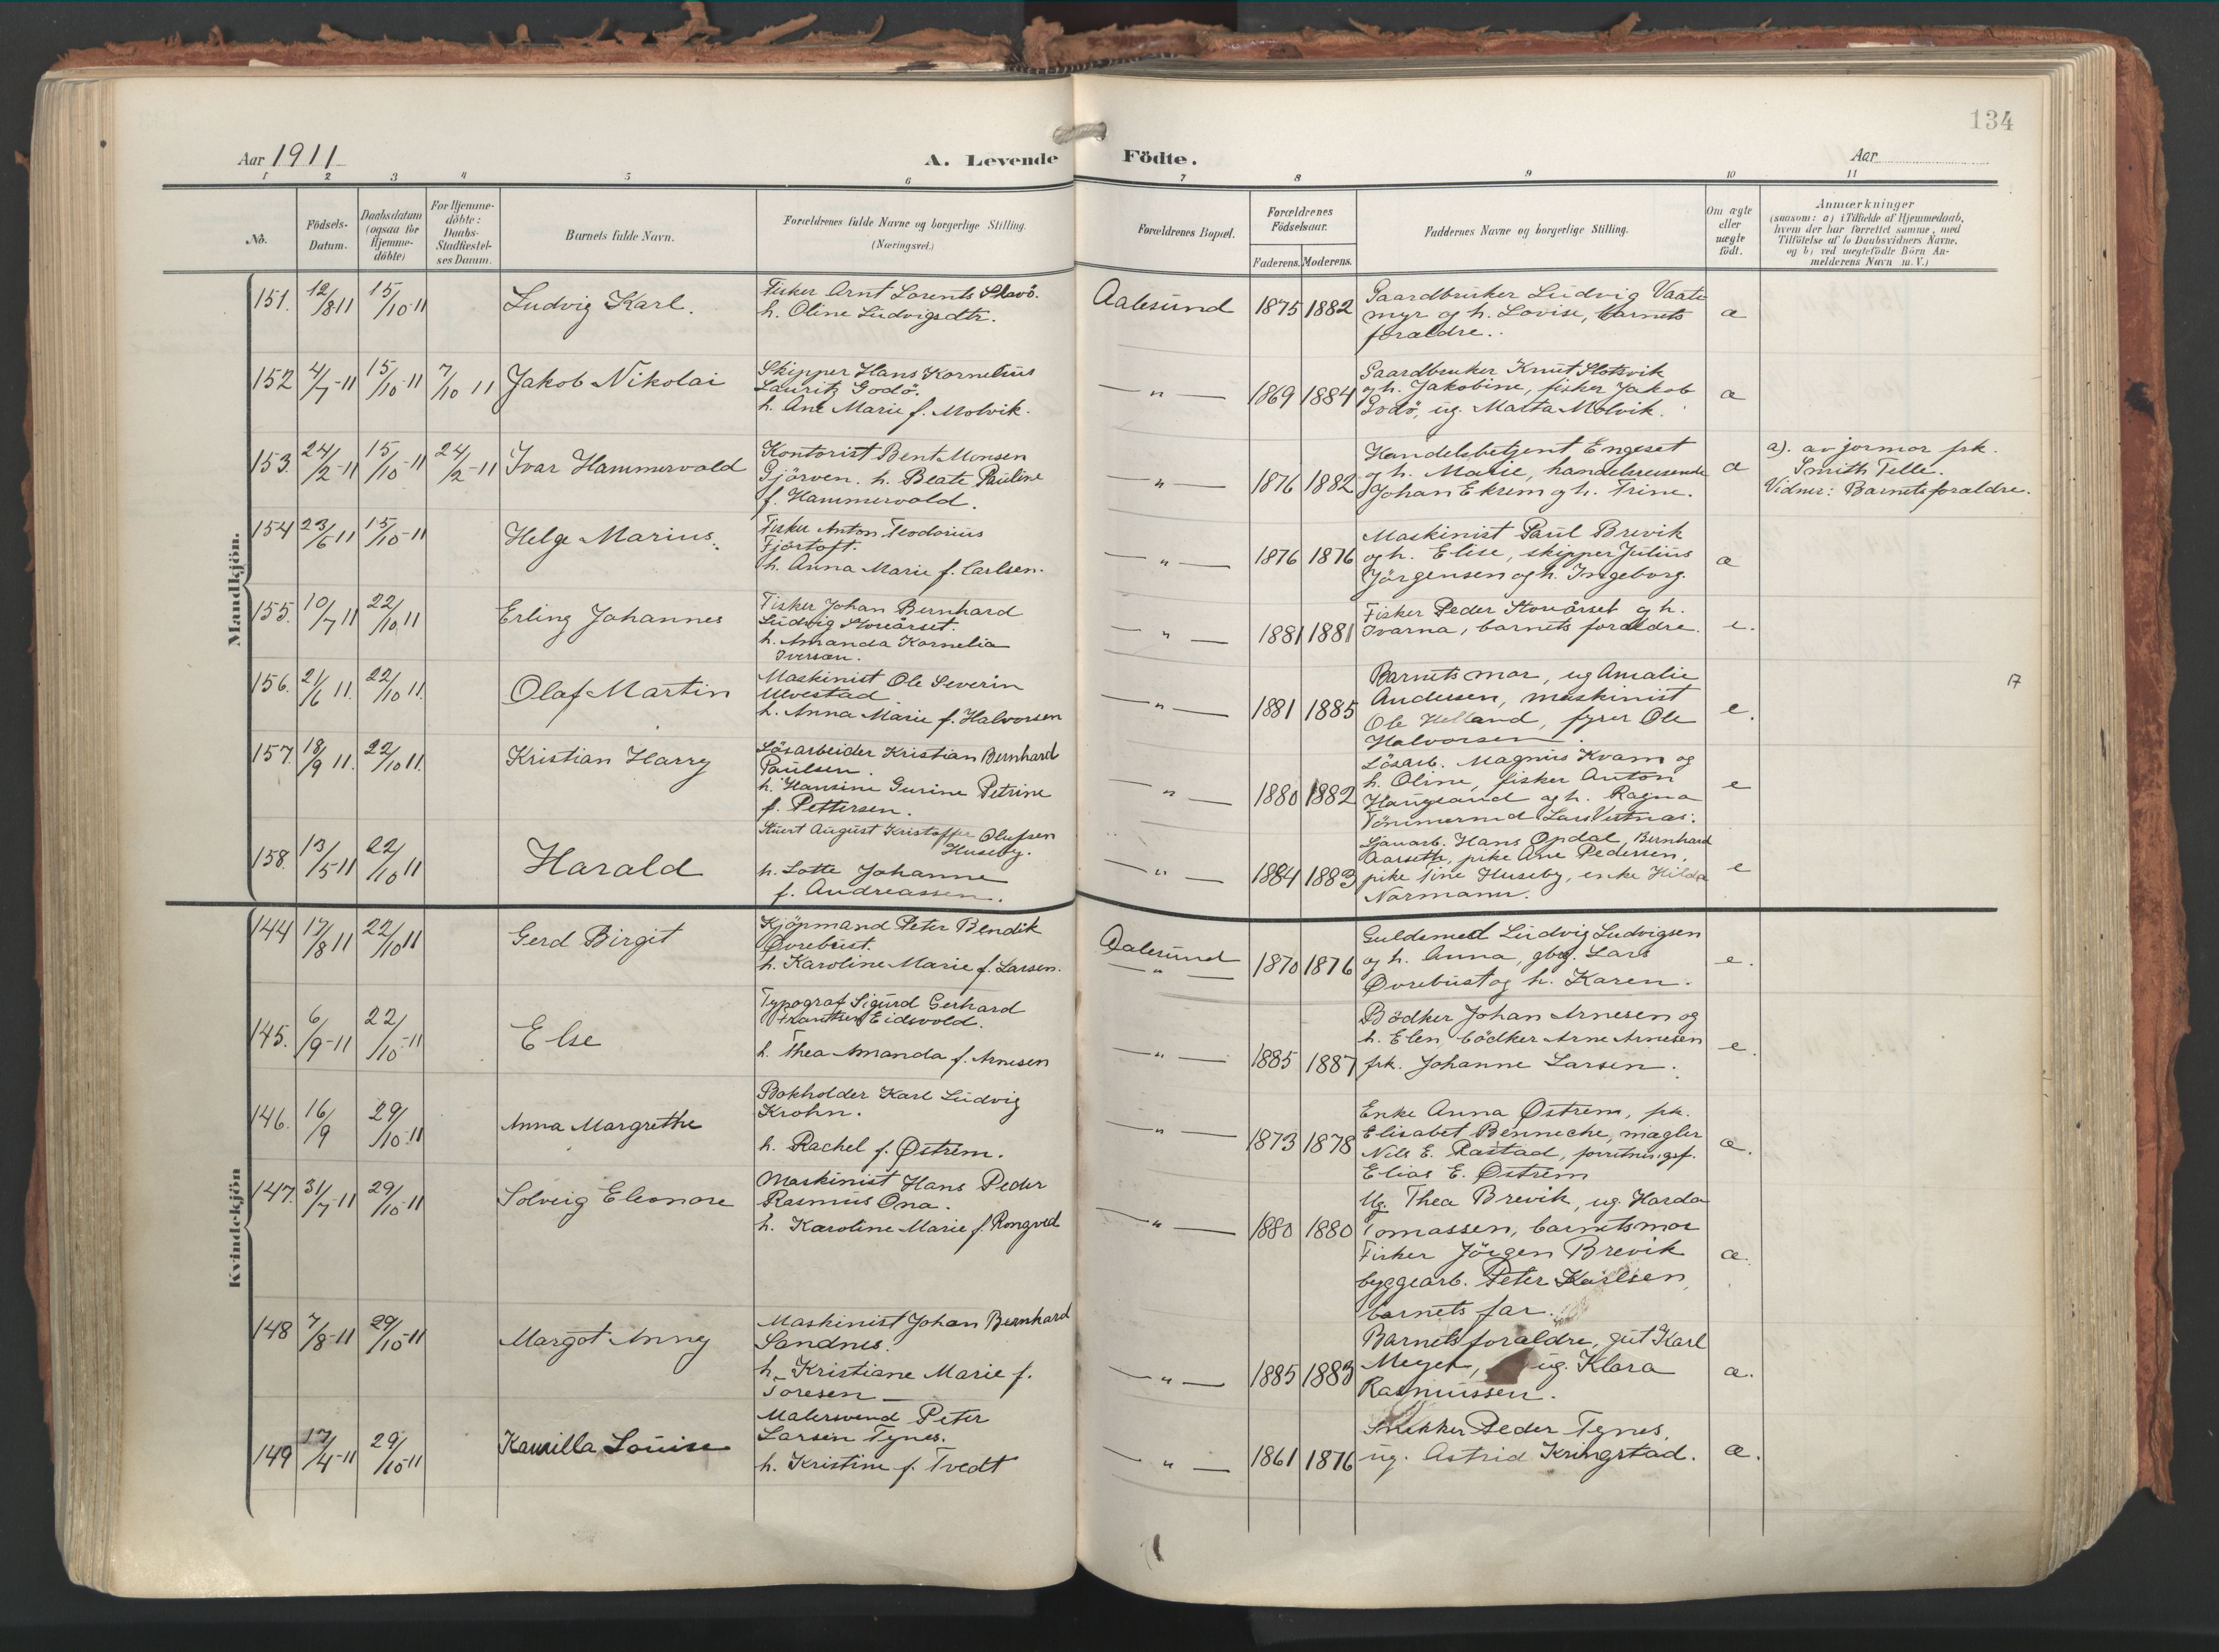 134
Aar 1911
A. Levende Födte.
Aar
1 2 3 4 5 6 7 8 9 10 11
No.
Födsels-Datum.
Daabsdatum (ogsaa for Hjemme-döbte)
For Hjemme-döbte: Daabs-Stadfæstel-ses Datum.
Barnets fulde Navn.
Forældrenes fulde Navne og borgerlige Stilling.
(Næringsvei.)
Forældrenes Bopæl.
Forældrenes Födselsaar.
Faderens. Moderens.
Faddernes Navne og borgerlige Stilling.
Om ægte eller uægte födt.
Anmærkninger
(saasom: a) i Tilfælde af Hjemmedaab,
hvem der har forrettet samme, med
Tilföielse af to Daabsvidners Navne,
og b) ved uægtefödte Börn An-
melderens Navn m. V.)
Mandkjön.
151. 12/8 11 15/10 11 Ludvig Karl.
Fisker Arnt Lorents
h. Oline Ludvigsdtr.
Aalesund 1875 1882
Gaardbruker Ludvig Vaate
myr og h. Lovise, barnets
foraldre..
æ
152 4/7-11 15/10-11 7/10 11 Jakob Nikolai
Skipper Hans Kornelius
Lauritz Godö.
h. Ane Marie f. Molvik.
—"— 1869 1884
Gaardbruker Knut Slotsvik
og h. Jakobine, fisker Jakob
Godö, ug. Marta Molvik.
æ
153. 24/2-11 15/10-11 24/2-11 Ivar Hammervold
Kontorist Bent Monsen
Gjörven. h. Beate Pauline
f. Hammervold.
—"— 1876 1882
Handelsbetjent Engeset
og h. Marie, handelsreisende
Johan Ekrem og h. Trine.
æ
a). av jormor frk.
Smith Telle.
Vidner: Barnets foraldre.
154 23/6 11 15/10-11 Helge Marius.
Fisker Anton Teodorius
Fjörtoft.
h. Anna Marie f. Carlsen.
—"— 1876 1876
Maskinist Paul Brevik
og h. Elise, skipper Julius
Jörgensen og h. Ingeborg.
æ
155. 10/7 11 22/10 11 Erling Johannes
Fisker Johan Bernhard
Ludvig Storeårset.
h. Amanda Kornelia
Iversen.
—"— 1881 1881
Fisker Peder Storeårset og h.
Ivarna, barnets foraldre.
e.
156. 21/6 11. 22/10 11. Olaf Martin
Maskinist Ole Severin
Ulvestad
h. Anna Marie f. Halvorsen
—"— 1881 1885
Barnets mor, ug Amalie
Andersen, maskinist
Ole Helland, fyrer Ole
Halvorsen.
e.
17
157. 18/9 11. 22/10 11. Kristian Harry
Lösarbeider Kristian Bernhard
Paulsen.
h. Hansine Gurine Petrine
f. Pettersen.
—"— 1880 1882
Lösarb. Magnus Kvam og
h. Oline, fisker Anton
Haugeand og h. Ragna
Tömmermd Lars Vestnas.
e
158. 13/5-11 22/10 11 Harald
Stuert August Kristoffer Olufsen
Huseby.
h. Lotte Johanne
f. Andreassen.
—"— 1884 1883
Sjauarb. Hans Opdal, Bernhard
Aarseth, pike Ane Pedersen,
pike Tine Huseby, enke Hilda
Normann.
e
Kvindekjön
144 17/8 11 22/10 11 Gerd Birgit
Kjöpmand Peter Bendik
Øvrebust.
h. Karoline Marie f. Larsen.
Aalesund
—"— 1870 1876
Guldsmed Ludvig Ludvigsen
og h. Anna, gbg. Lars
Øvrebust og h. Karen.
e.
145. 6/9-11 22/10-11 Else
Typograf Sigurd Gerhard
Frantsen Eidsvold.
h. Thea Amanda f. Arnesen
—"— 1885 1887
Bödker Johan Arnesen og
h. Elen, bödker Arne Arnesen
frk. Johanne Larsen.
e.
146. 16/9 29/10-11 Anna Margrethe
Bokholder Karl Ludvig
Krohn.
h. Rachel f. Østrem.
—"— 1873 1878
Enke Anna Østrem, frk.
Elisabet Benneche, mægler
Nils E. Rastad, forretningsf.
Elias E. Østrem
æ.
147. 31/7-11 29/10-11 Solveig Eleonore
Maskinist Hans Peder
Rasmus Ona.
h. Karoline Marie f. Rongved
—"— 1880 1880
Ug. Thea Brevik, ug. Harda
Tomassen, barnets mor
Fisker Jörgen Brevik
byggearb. Peter Karlsen,
barnets far.
æ.
148 7/8-11 29/10-11 Margot Anny
Maskinist Johan Bernhard
Sandnes.
h. Kristiane Marie f.
Toresen —
—"— 1885 1883
Barnets foraldre, gut Karl
Meyer, ug. Klara
Rasmussen.
æ.
149 17/4-11 29/10-11 Kamilla Louise
Malersvend Peter
Larsen Tynes.
h. Kristine f. Tvedt
—"— 1861 1876
Snekker Peder Tynes,
ug. Astrid Kringstad.
æ.